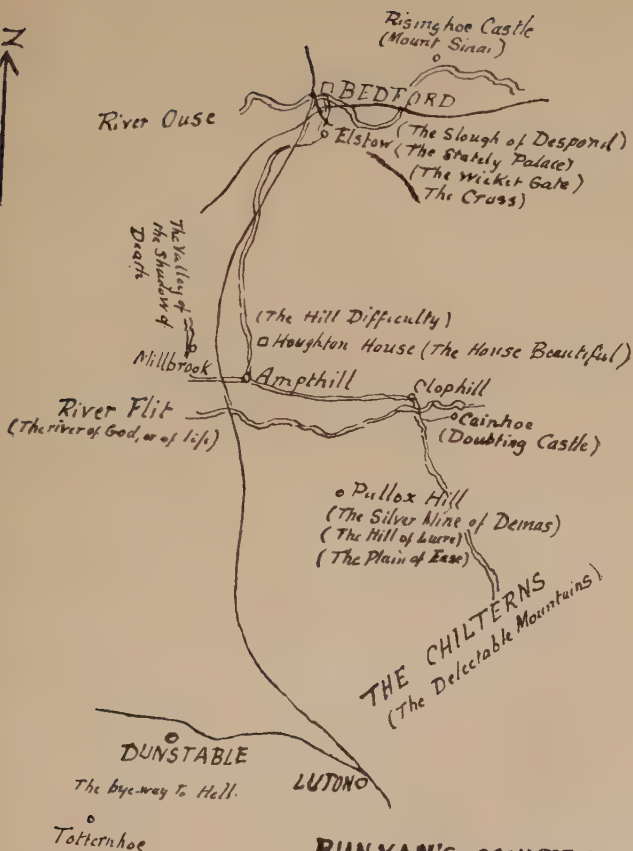 N
Risinghoe Castle
(Mount Sinai)
BEDFORD
River Ouse
Elstow (The Slough of Despond)
(The Stately Palace)
(The Wicket Gate)
The Cross)
The Valley of
the Shadow of
Death
(The Hill Difficulty)
Houghton House (The House Beautiful)
Millbrook
Ampthill
Clophill
River Flit
(The river of God, or of life)
Cainhoe
(Doubting Castle)
Pullox Hill
(The Silver Mine of Demas)
(The Hill of Lucre)
(The Plain of Ease)
THE CHILTERNS
(The Delectable Mountains)
DUNSTABLE
The bye-way to Hell.
LUTON
Totternhoe
BUNYAN'S